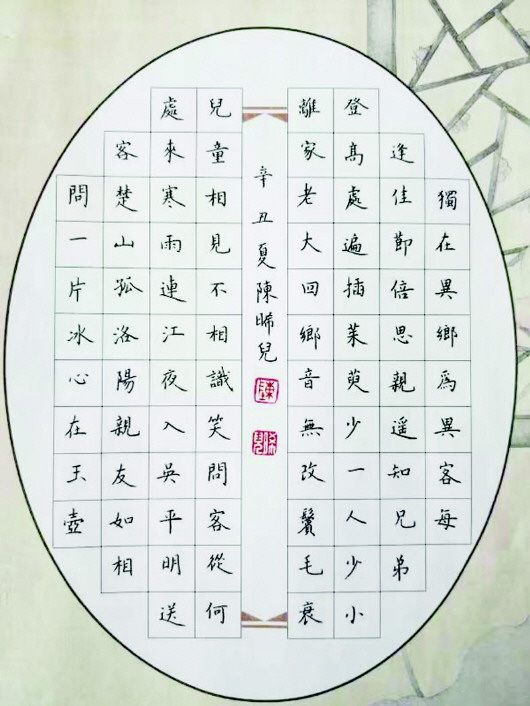 獨在異鄉爲異客每
逢佳節倍思親遥知兄弟
登高處遍插茱萸少一人少小
離家老大回鄉音無改鬢毛衰
辛丑夏陳晞兒
陳
兒童相見不相識笑問客從何
處來寒雨連江夜入吳平明送
客楚山孤洛陽親友如相
問一片冰心在玉壺